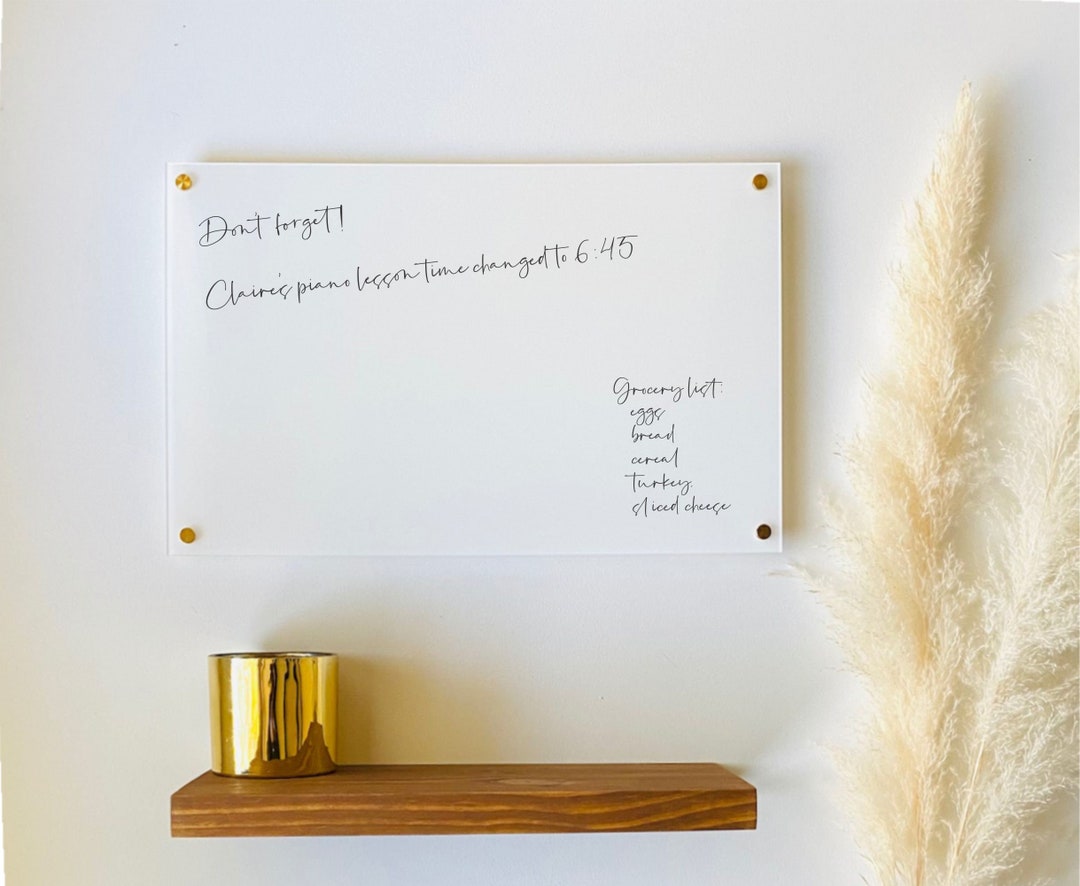 Don't forget!
Claire's piano lesson time changed to 6:45
Grocery list:
eggs
bread
cereal
turkey
sliced cheese